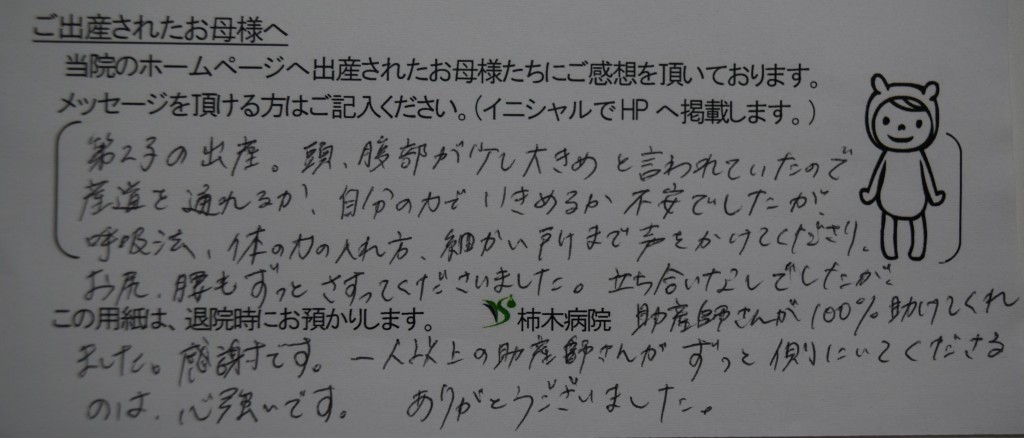 ご出産されたお母様へ
当院のホームページへ出産されたお母様たちにご感想を頂いております。
メッセージを頂ける方はご記入ください。(イニシャルでHPへ掲載します。)
第2子の出産。頭、腹部が少し大きめと言われていたので
産道を通れるか、自分の力でいきめるか不安でしたが、
呼吸法、体の力の入れ方、細かい所まで声をかけてくださり、
お尻、腰もずっとさすってくださいました。立ち合いなしでしたが、
この用紙は、退院時にお預かりします。 柿木病院 助産師さんが100%助けてくれ
ました。感謝です。一人以上の助産師さんがずっと側にいてくださる
のは、心強いです。 ありがとうございました。